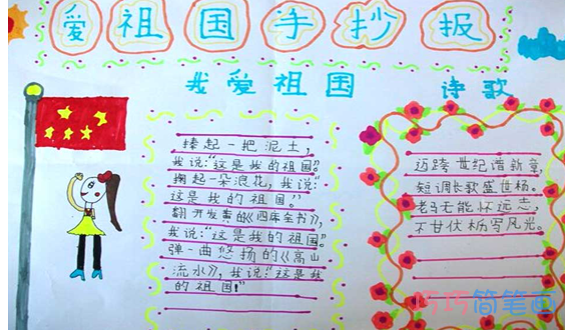 爱祖国手抄报
我爱祖国
捧起一把泥土，
我说:“这是我的祖国。”
掬起一朵浪花，我说:“
这是我的祖国”。
翻开发黄的《四库全书》，
我说:“这是我的祖国。”
弹一曲悠扬的《高山
流水》，我说:“这是我
的祖国!”
诗歌
迈跨世纪谱新章，
短调长歌盛世杨。
老马无能怀远志，
不甘伏枥写风光。
巧巧简笔画